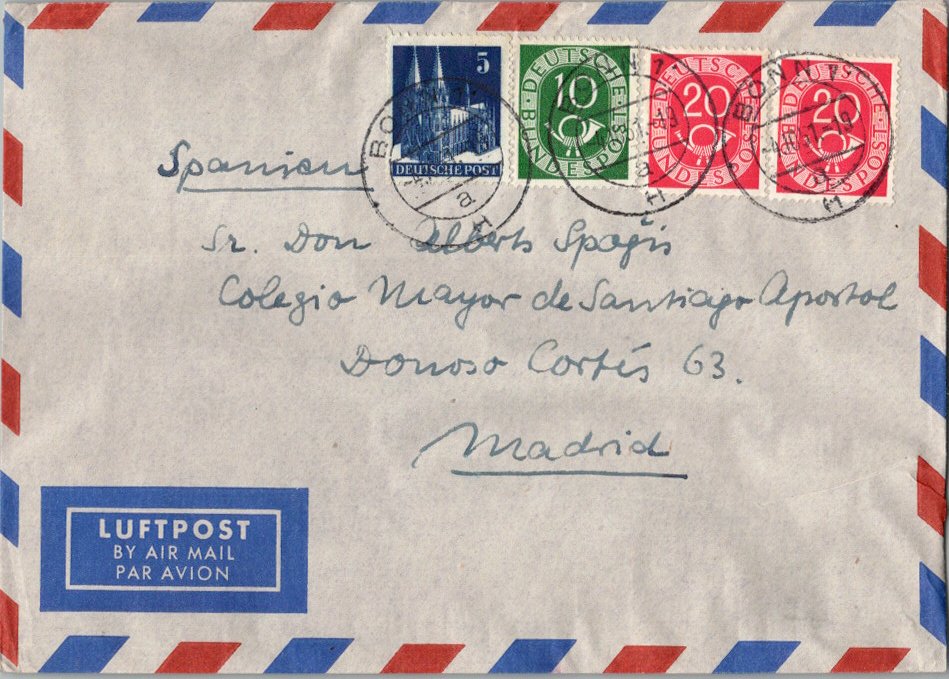 5
DEUTSCHE POST
10
DEUTSCHE BUNDESPOST
20
DEUTSCHE BUNDESPOST
20
DEUTSCHE BUNDESPOST
BONN
a
BONN 1
a
BONN 1
Spanien
Sr. Don Alberto
Colegio Mayor de Santiago Apostol
Donoso Cortés 63.
Madrid
LUFTPOST
BY AIR MAIL
PAR AVION